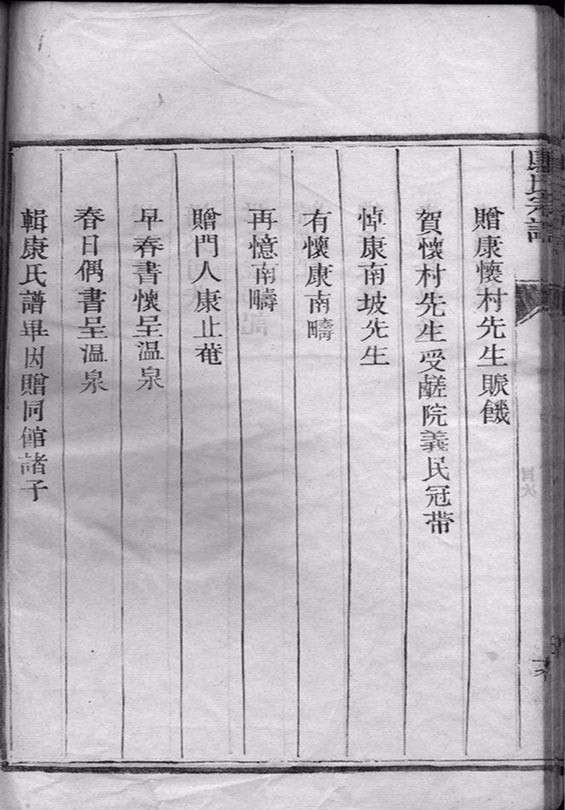 康氏宗譜
目次
贈康懷村先生賑饑
賀懷村先生受鹺院義民冠帶
悼康南坡先生
有懷康南疇
再憶南疇
贈門人康止菴
早春書懷呈溫泉
春日偶書呈溫泉
輯康氏譜畢因贈同館諸子